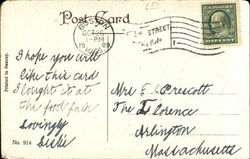 Post Card
BOSTON
OCT 26
-PM
1909
MASS
STREET
I hope you will
like this card
I bought it at
the food fair
Lovingly
Mrs E L Prescott
The Florence
Arlington
Massachusetts
Printed in Saxony.
No. 914